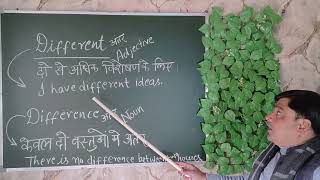 Different अंतर Adjective
दो से अधिक विशेषण के लिए
I have different ideas.
Difference अंतर Noun
केवल दो वस्तुओ मे अंतर
There is no difference between houses